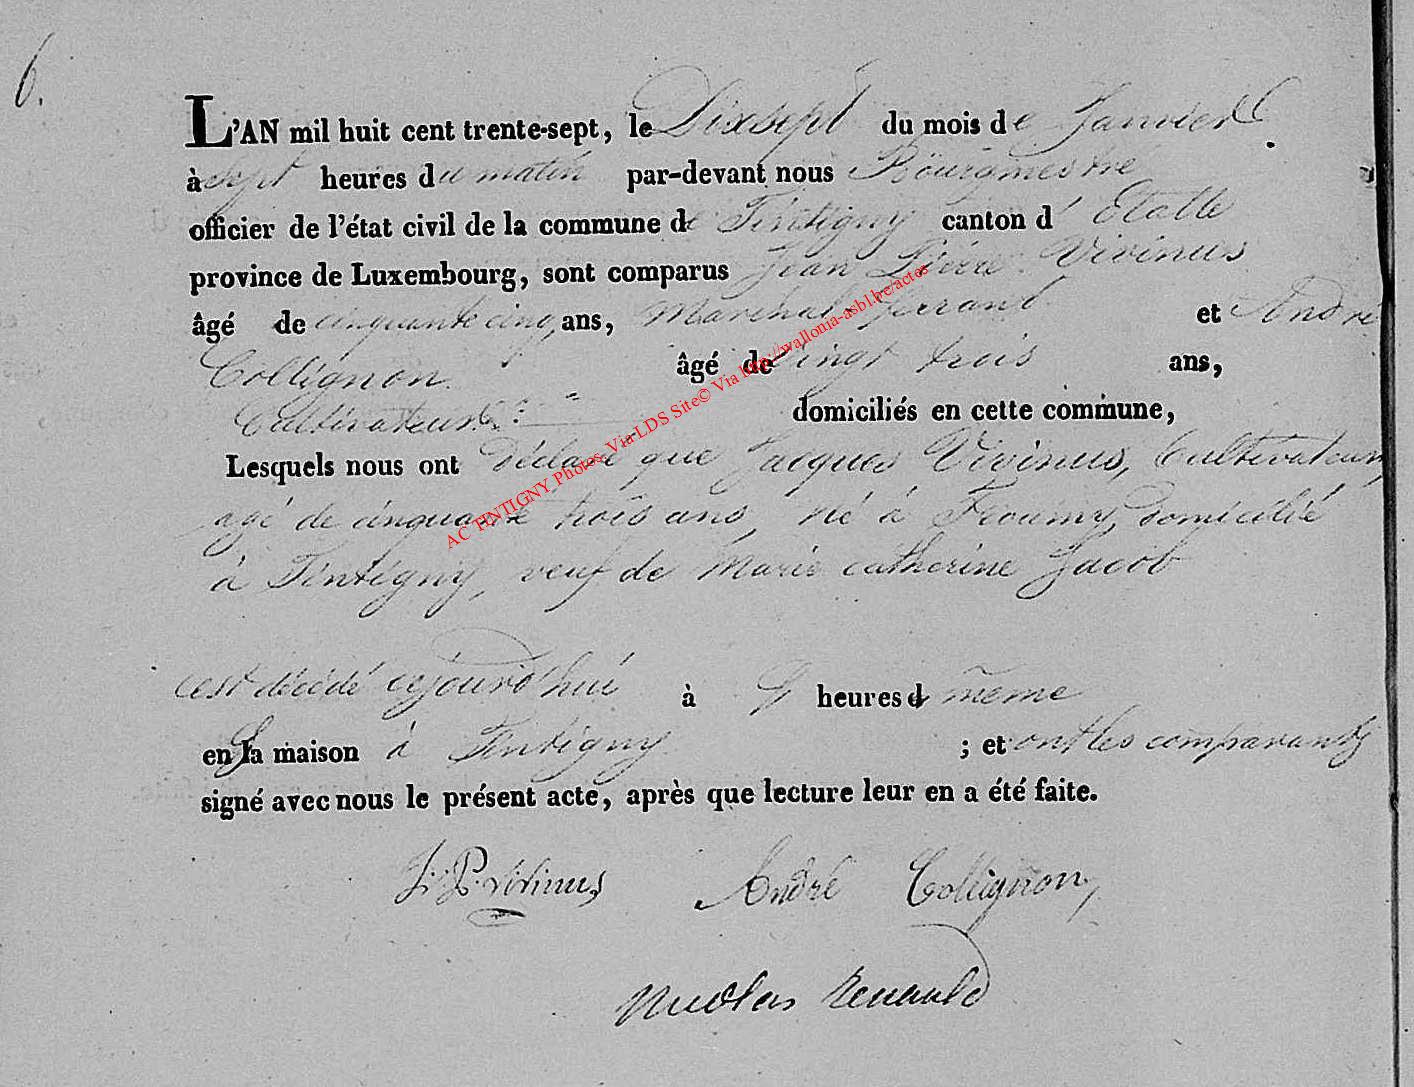 6.
L'AN mil huit cent trente-sept, le Dixsept du mois de Janvier
à sept heures du matin par-devant nous Bourgmestre
officier de l'état civil de la commune de Tintigny canton d' Etalle
province de Luxembourg, sont comparus Jean Pierre Vivinus
âgé de cinquante cinq ans, Marechal ferrant et André
Collignon âgé de vingt trois ans,
Cultivateur domiciliés en cette commune,
Lesquels nous ont déclaré que Jacques Vivinus, Cultivateur,
agé de cinquante trois ans, né à domicilié
à Tintigny, veuf de Marie catherine Jacob
est décédé aujourd'hui à heures d même
en la maison à Tintigny ; et ont les comparants
signé avec nous le présent acte, après que lecture leur en a été faite.
J. P. Vivinus André Collignon
Nicolas Renauld
AC TINTIGNY Photos Via LDS Site© Via http://wallonia-asbl.be/actes